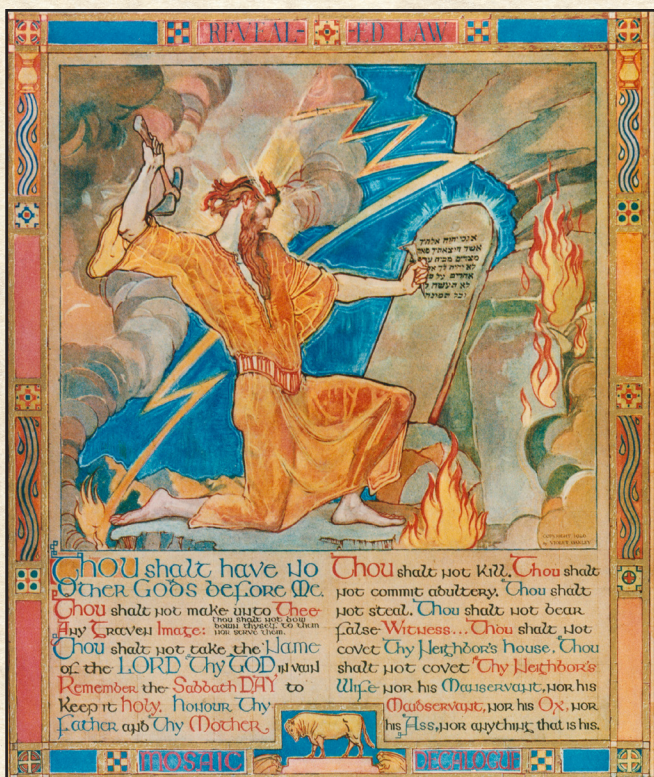 REVEAL-ED LAW
אנכי יהוה אלהך
אשר הוצאתיך
מצרים מבית
לא יהיה לך
אחרים על
לא תעשה
וכל תמונה
COPYRIGHT
BY VIOLET OAKLEY
Thou shalt have No
Other Gods before Me.
Thou shalt not make unto Thee
Any Graven Image: Thou shalt not bow
down thyself to them
nor serve them.
Thou shalt not take the Name
of the LORD Thy GOD in vain
Remember the Sabbath DAY to
Keep it holy. Honour Thy
Father and Thy Mother.
Thou shalt not Kill. Thou shalt
not commit adultery. Thou shalt
not steal. Thou shalt not bear
false Witness... Thou shalt not
covet Thy Neighbor's house. Thou
shalt not covet Thy Neighbor's
Wife nor his Manservant, nor his
Maidservant, nor his Ox, nor
his Ass, nor anything that is his.
MOSAIC DECALOGUE